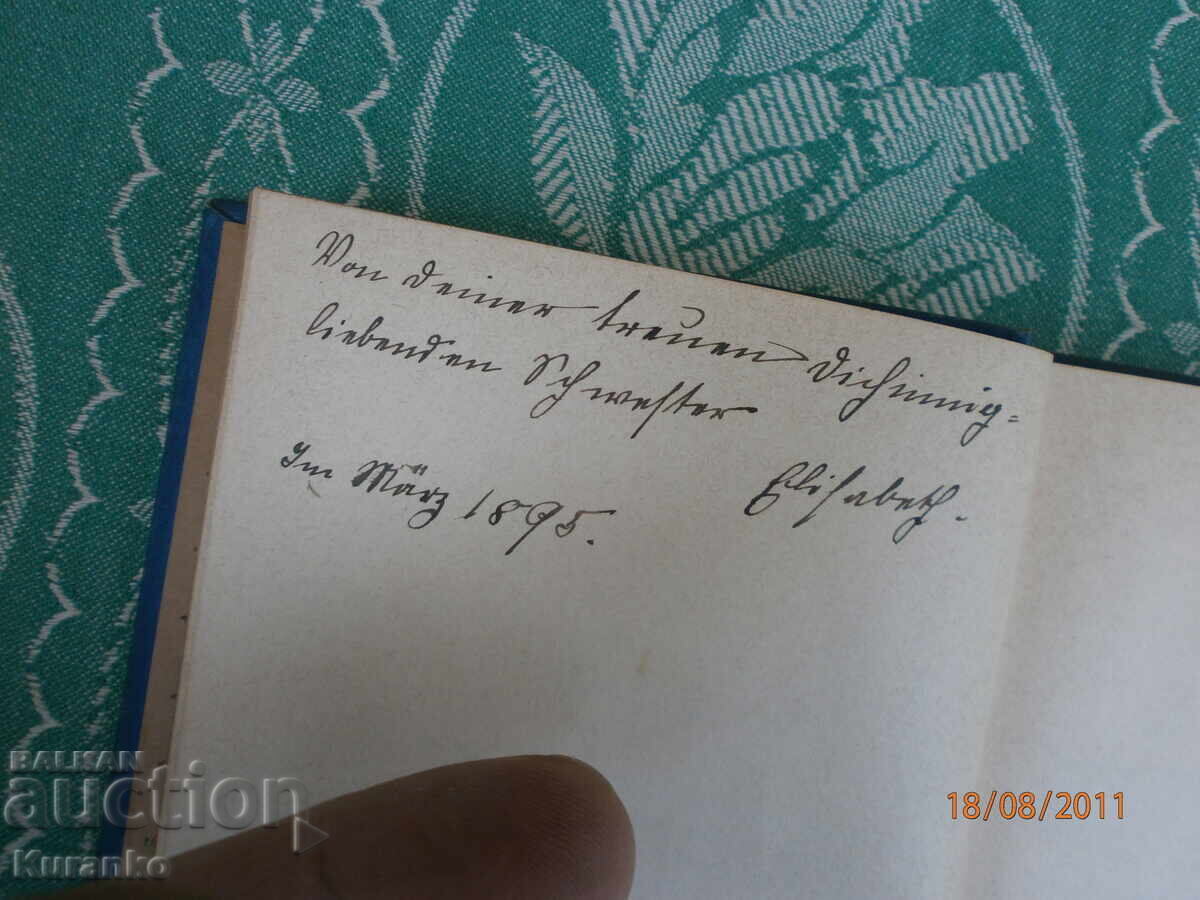 Von deiner treuen Dichinnig=
liebenden Schwester
Im März 1895.
Elisabeth.
BALKAN
auction
Kuranko
18/08/2011